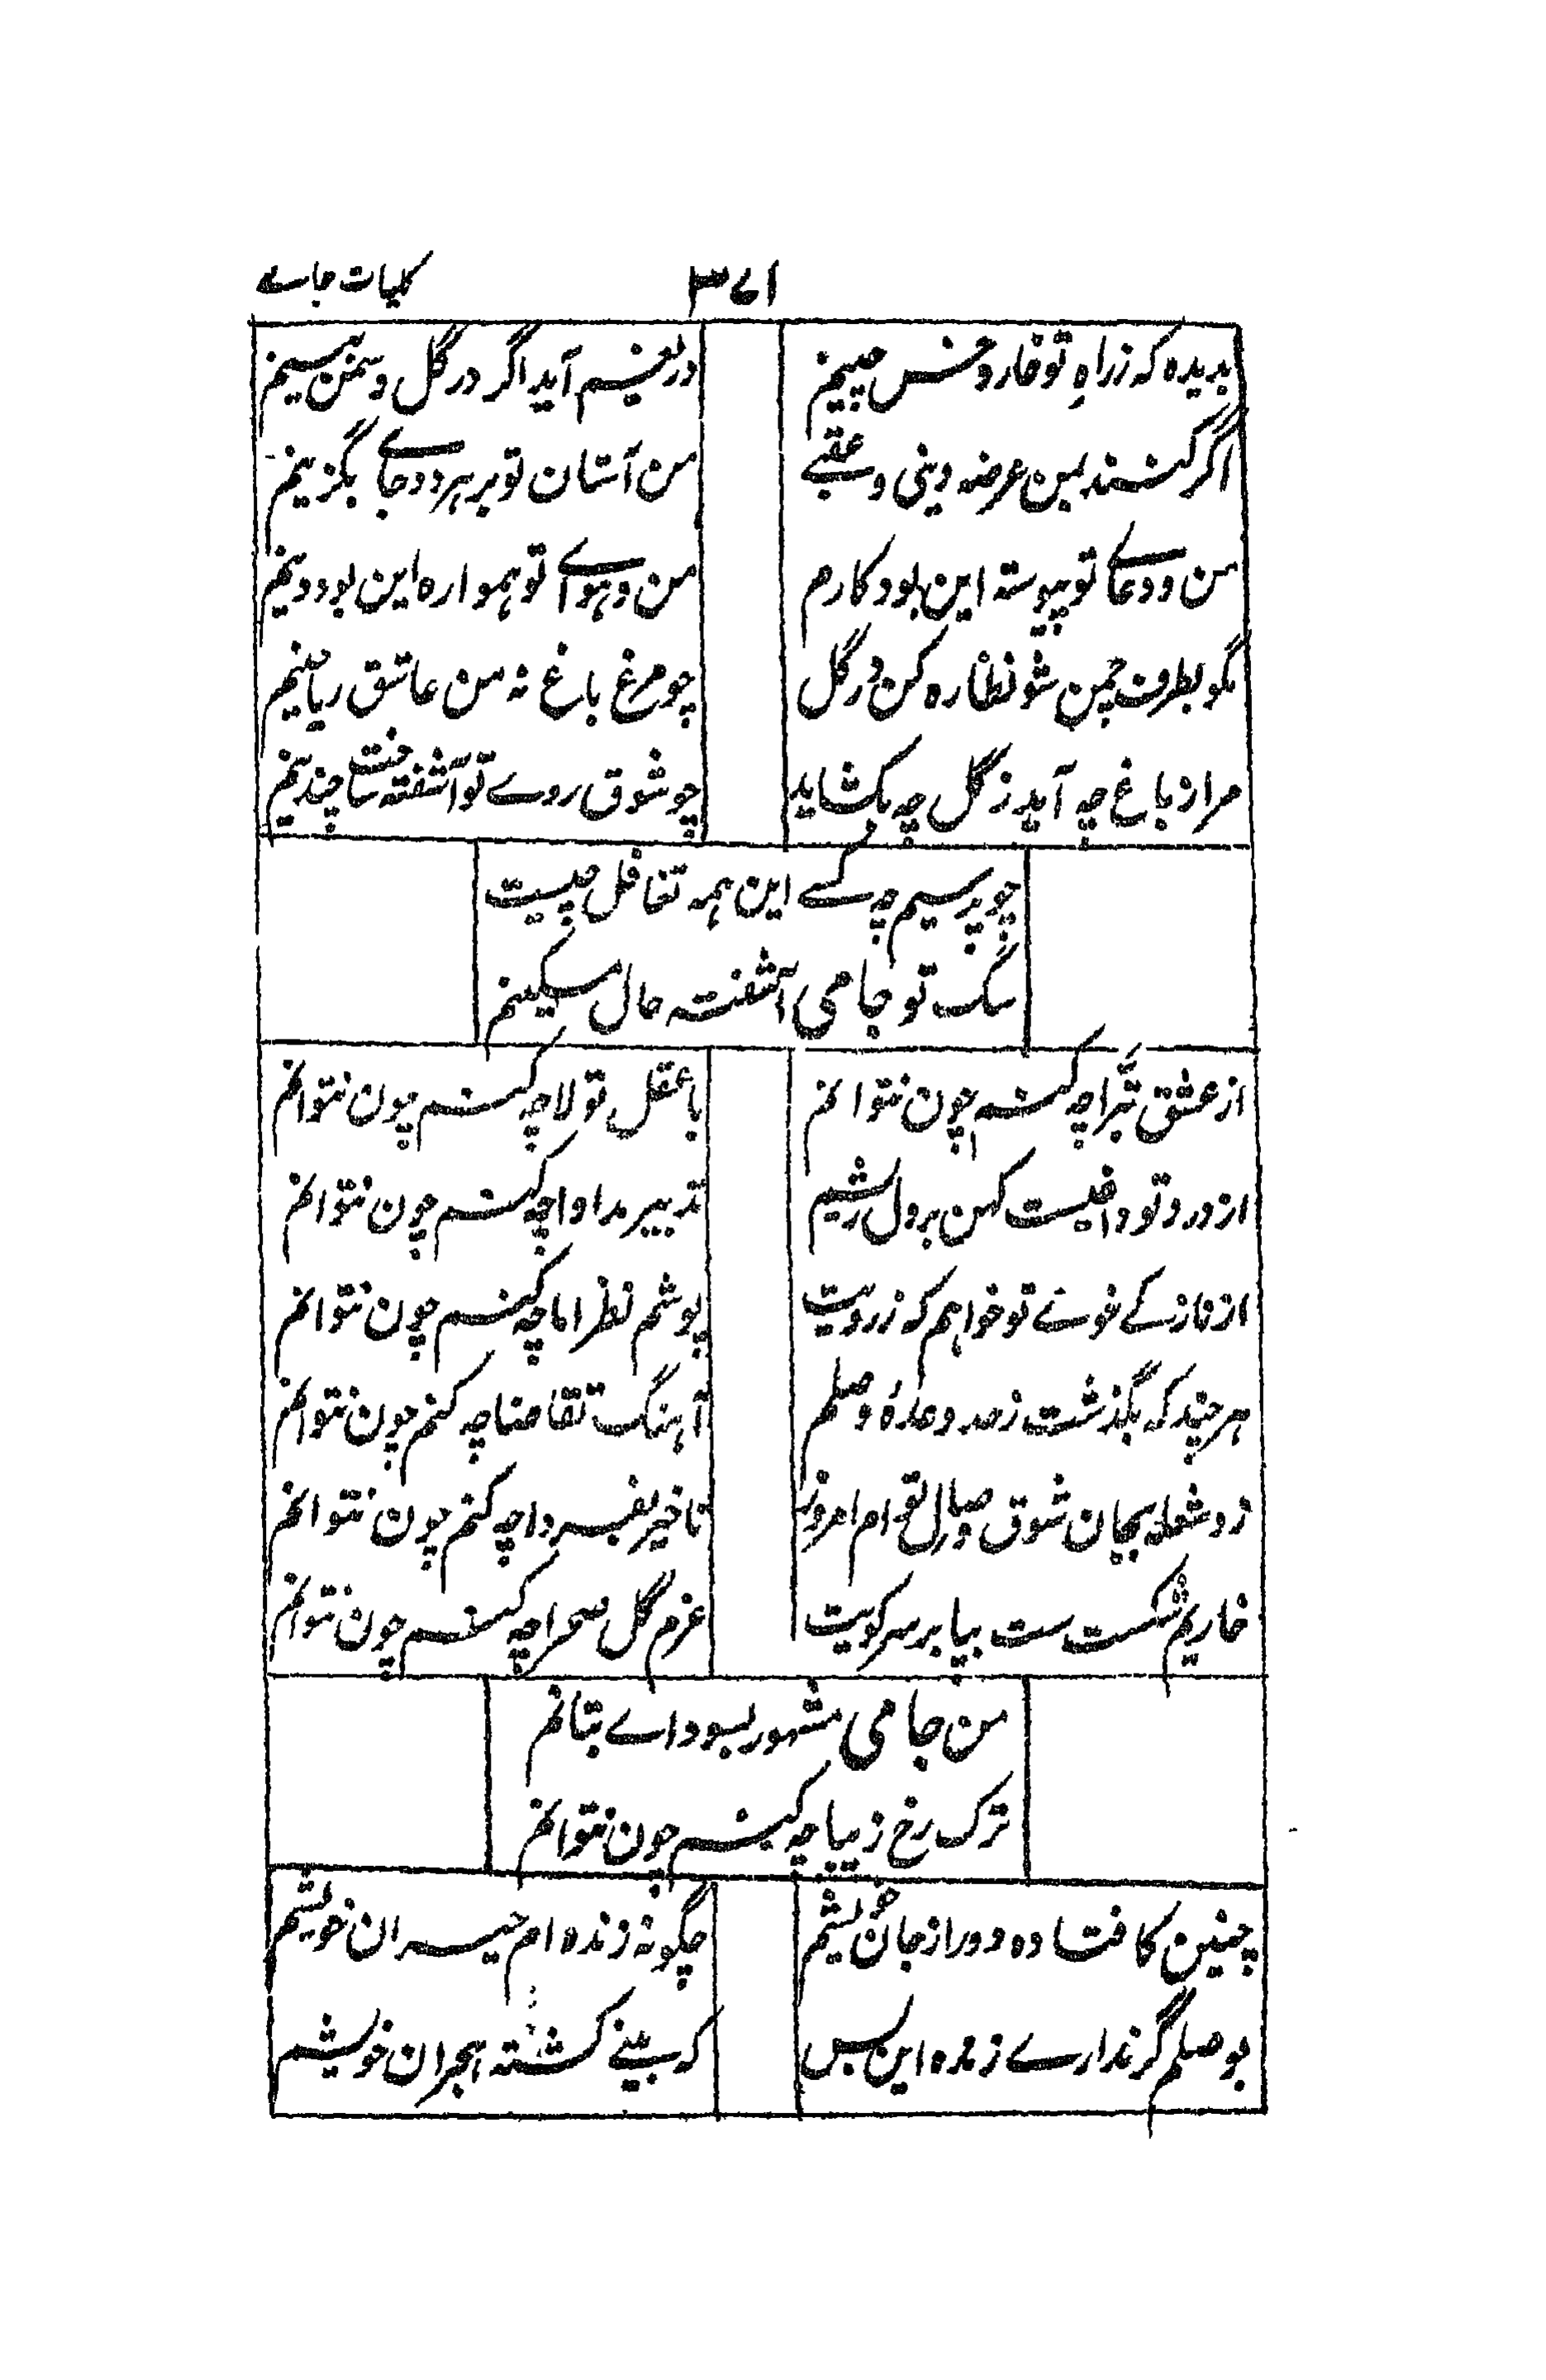 کلیات جامے
۳۷۱
بدیده که ز راهِ تو خار و خس چینم
دریغم آید اگر در گل و سمن بینم
اگر کنند بمن عرضه دینی و عقبے
من آستان تو بر هر دو جاے بگزینم
من و دعاے تو پیوسته این بود کارم
من و هواے تو همواره این بود دینم
مگو بطرف چمن شو نظاره کن در گل
چو مرغ باغ نه من عاشق ریاحینم
مرا ز باغ چه آید ز گل چه بکشاید
چو شوق روے تو آشفته ساخت چندینم
چو پرسیم چه کسے این همه تغافل چیست
سگ تو جامی آشفته حال مسکینم
از عشق تبرّا چه کنم چون نتوانم
با عقل تولا چه کنم چون نتوانم
از درد تو داغیست کهن بر دل ریشم
تدبیر مداوا چه کنم چون نتوانم
از نازکے خوے تو خواهم که ز رویت
پوشم نظر اما چه کنم چون نتوانم
هر چند که بگذشت ز حد وعدۀ وصلم
آهنگ تقاضا چه کنم چون نتوانم
زد شعله بجان شوق وصال تو ام امروز
تاخیر بفردا چه کنم چون نتوانم
خاریم شکست ست بپا بر سر کویت
عزم گل صحرا چه کنم چون نتوانم
من جامی مشهور بسوداے بتانم
ترک رخ زیبا چه کنم چون نتوانم
چنین کافتاده دور از جان خویشم
چگونه زنده ام حیران خویشم
بوصلم گر ندارے زنده این بس
که بینے کشته هجران خویشم